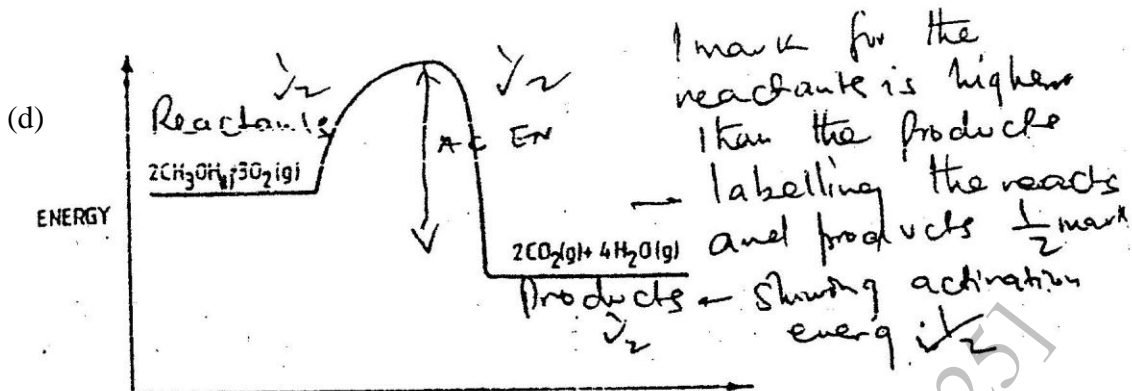 (d)
Reactants ½
½
AC EN
2CH₃OH + 3O₂(g)
ENERGY
2CO₂(g) + 4H₂O(g)
Products
½
1 mark for the
reactants is higher
than the products
— labelling the reacts
and products ½ mark
← showing activation
energ ½
25]